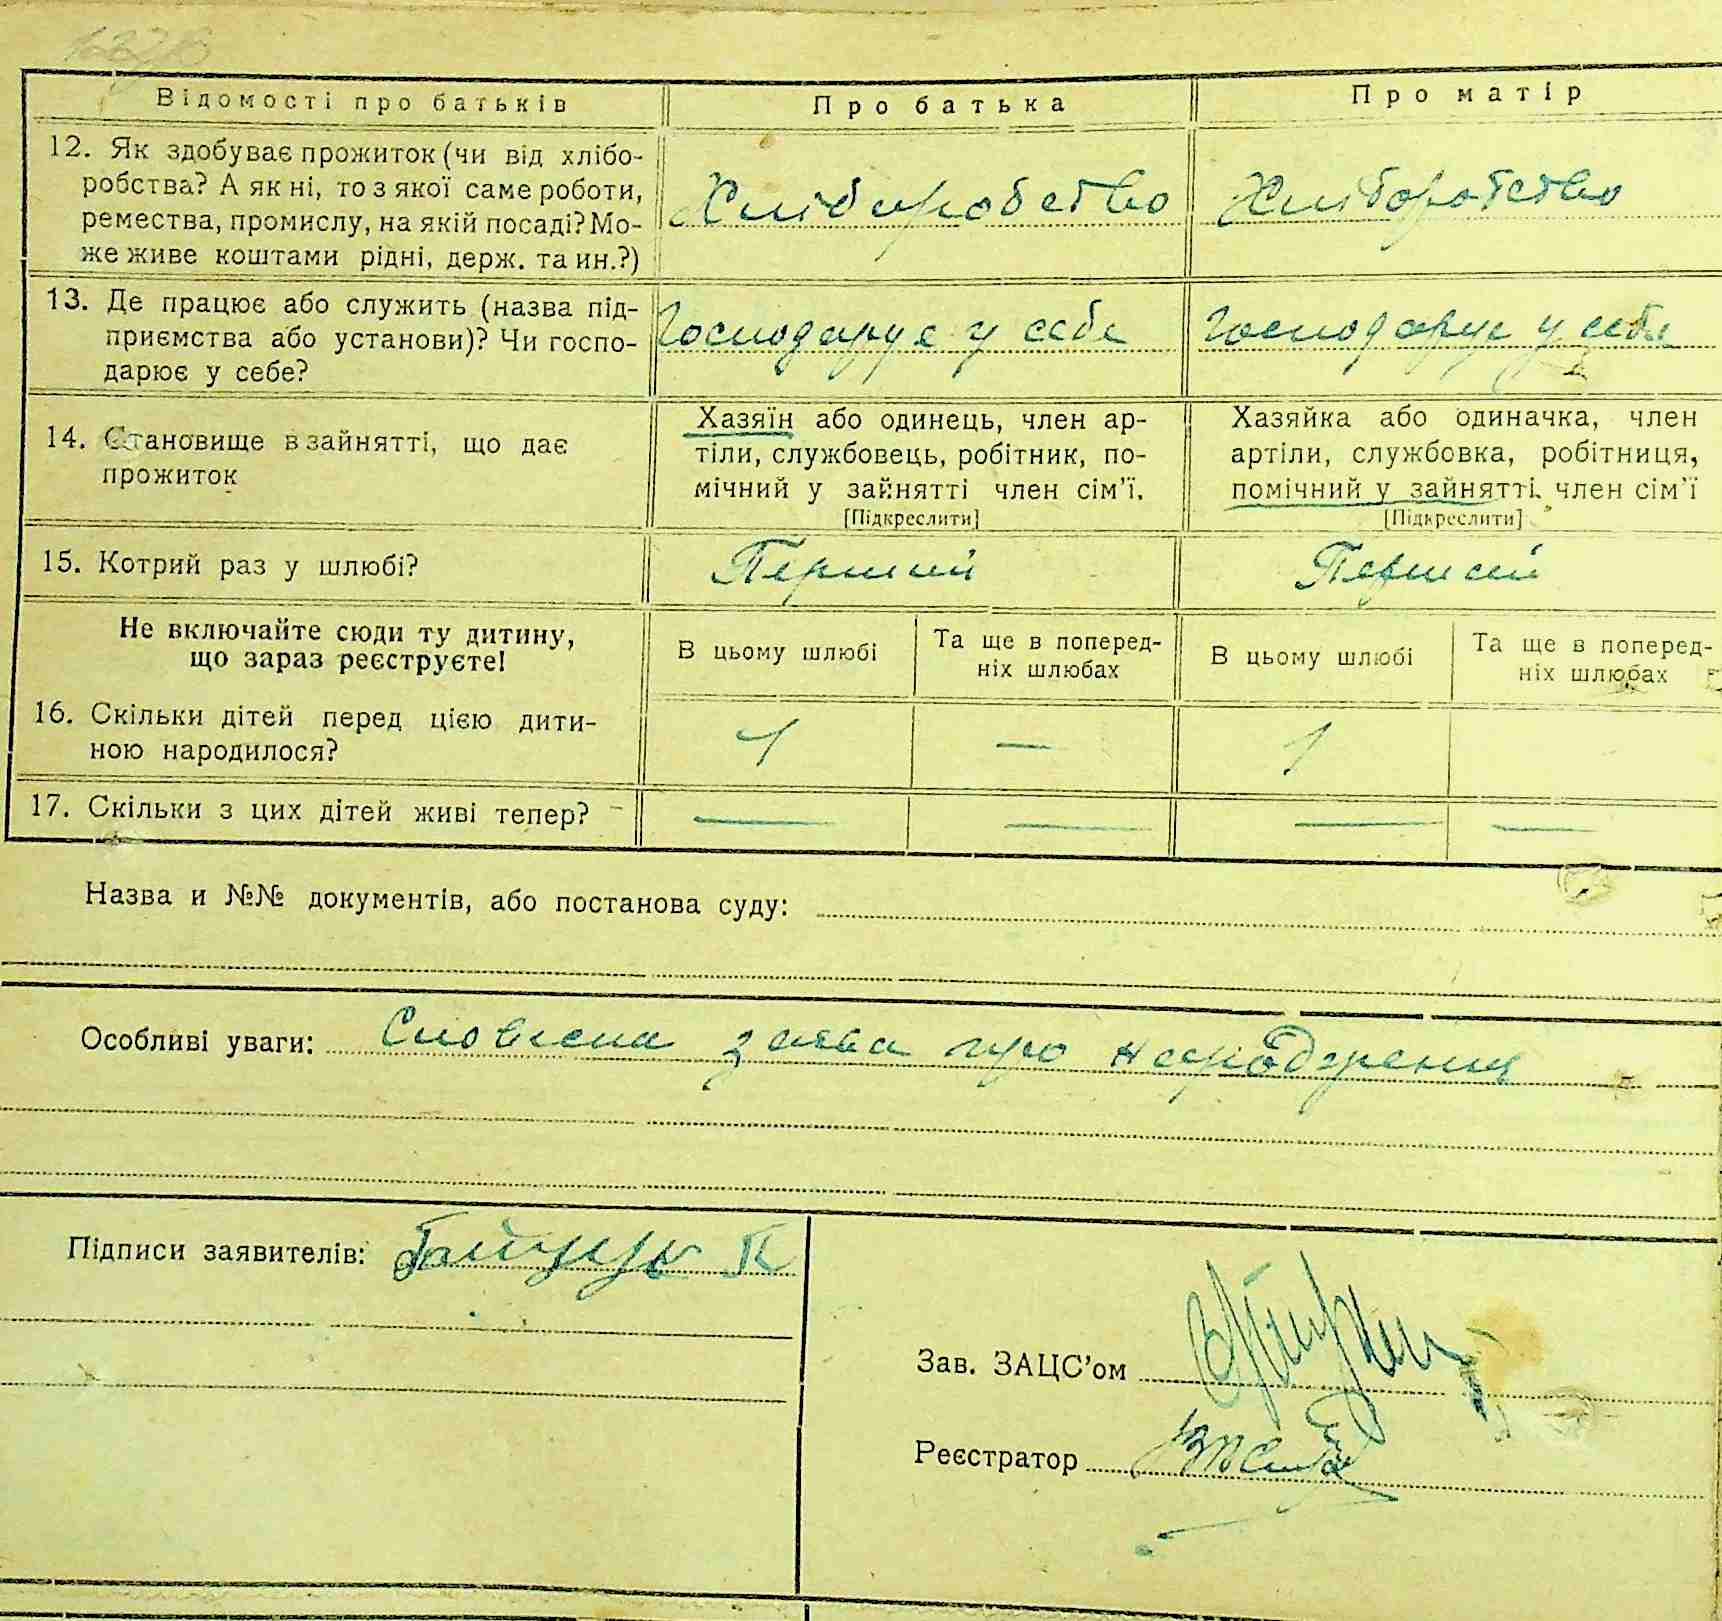 Відомості про батьків Про батька Про матір
12. Як здобуває прожиток (чи від хлібо-
робства? А як ні, то з якої саме роботи,
ремества, промислу, на якій посаді? Мо-
же живе коштами рідні, держ. та ин.?)
Хліборобство Хліборобство
13. Де працює або служить (назва під-
приємства або установи)? Чи госпо-
дарює у себе?
Господарує у себе Господарує у себе
14. Становище в зайнятті, що дає
прожиток
Хазяїн або одинець, член ар-
тіли, службовець, робітник, по-
мічний у зайнятті член сім'ї.
[Підкреслити]
Хазяйка або одиначка, член
артіли, службовка, робітниця,
помічний у зайнятті член сім'ї
[Підкреслити]
15. Котрий раз у шлюбі? Перший Перший
Не включайте сюди ту дитину,
що зараз реєструєте!
В цьому шлюбі
Та ще в поперед-
ніх шлюбах
В цьому шлюбі
Та ще в поперед-
ніх шлюбах
16. Скільки дітей перед цією дити-
ною народилося?
1 — 1
17. Скільки з цих дітей живі тепер? — — — —
Назва и №№ документів, або постанова суду:
Особливі уваги: Словесна заява про народження
Підписи заявителів:
Зав. ЗАЦС'ом
Реєстратор